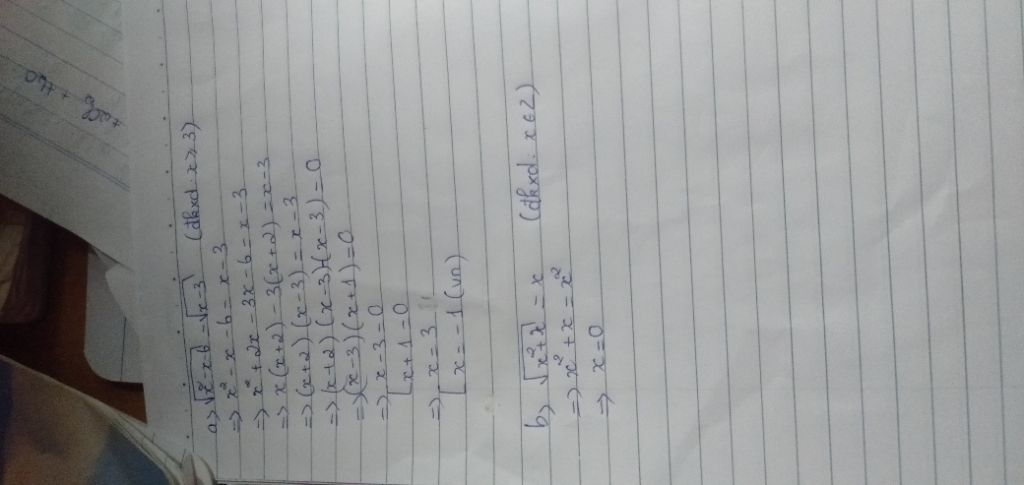 a) √x²-x-6 = √x-3 (đkxđ x ≥ 3)
=> x² - x - 6 = x - 3
=> x² + 2x - 3x - 6 = x - 3
=> x(x+2) - 3(x+2) = x - 3
=> (x+2)(x-3) = x - 3
=> (x+2)(x-3)-(x-3) = 0
=> (x-3)(x+1) = 0
=> [x-3=0
[x+1=0
=> [x=3
[x=-1 (vn)
b) √x²+x = x (đkxđ. x∈2)
=> x² + x = x²
=> x = 0